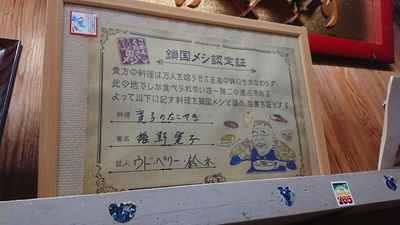 鎖国メシ認定証
貴方の料理は万人を唸らせる至高の味にもかかわらず
此の地でしか食べられない唯一無二の逸品である
よって以下に記す料理を鎖国メシと認め、当書を証とする
料理 寛子のたこやき
署名 椎野寛子
証人 ウド・ペリー鈴木